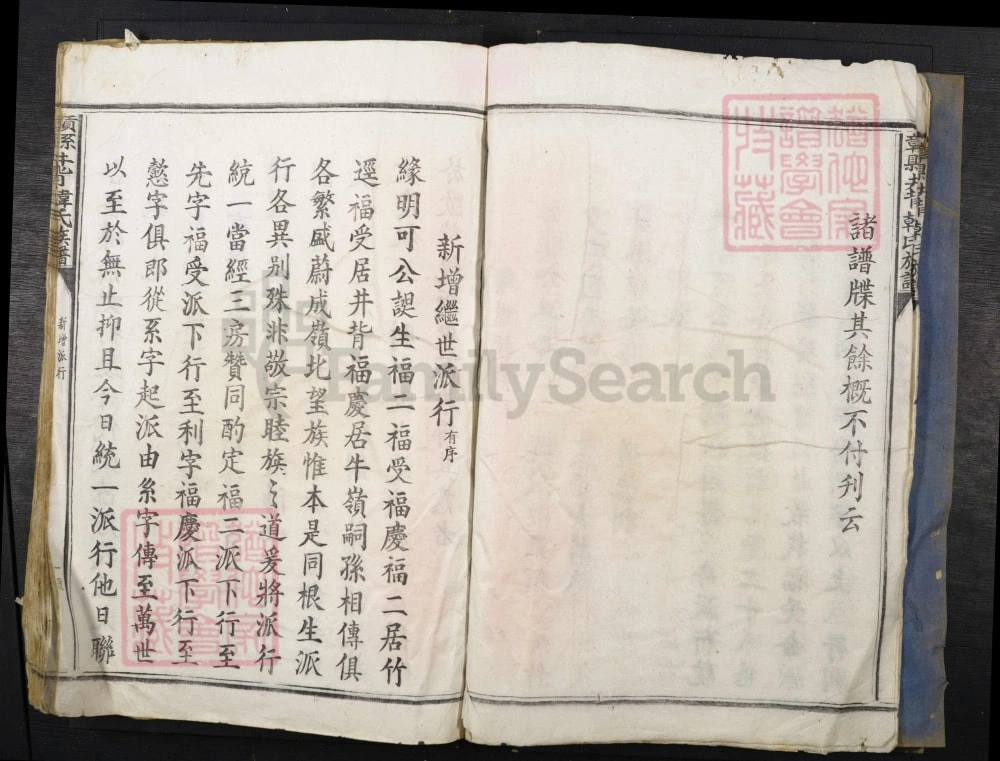 諸譜牒其餘概不付刋云
新增繼世派行有序
緣明可公誕生福二福受福慶福二居竹
逕福受居井背福慶居牛嶺嗣孫相傳俱
各繁盛蔚成嶺北望族惟本是同根生派
行各異别殊非敬宗睦族〻道爰將派行
統一當經三房贊同酌定福二派下行至
先字福受派下行至利字福慶派下行至
懲字俱即從系字起派由系字傳至萬世
以至於無止抑且今日統一派行他日聯
新增派行
韓氏族譜
FamilySearch